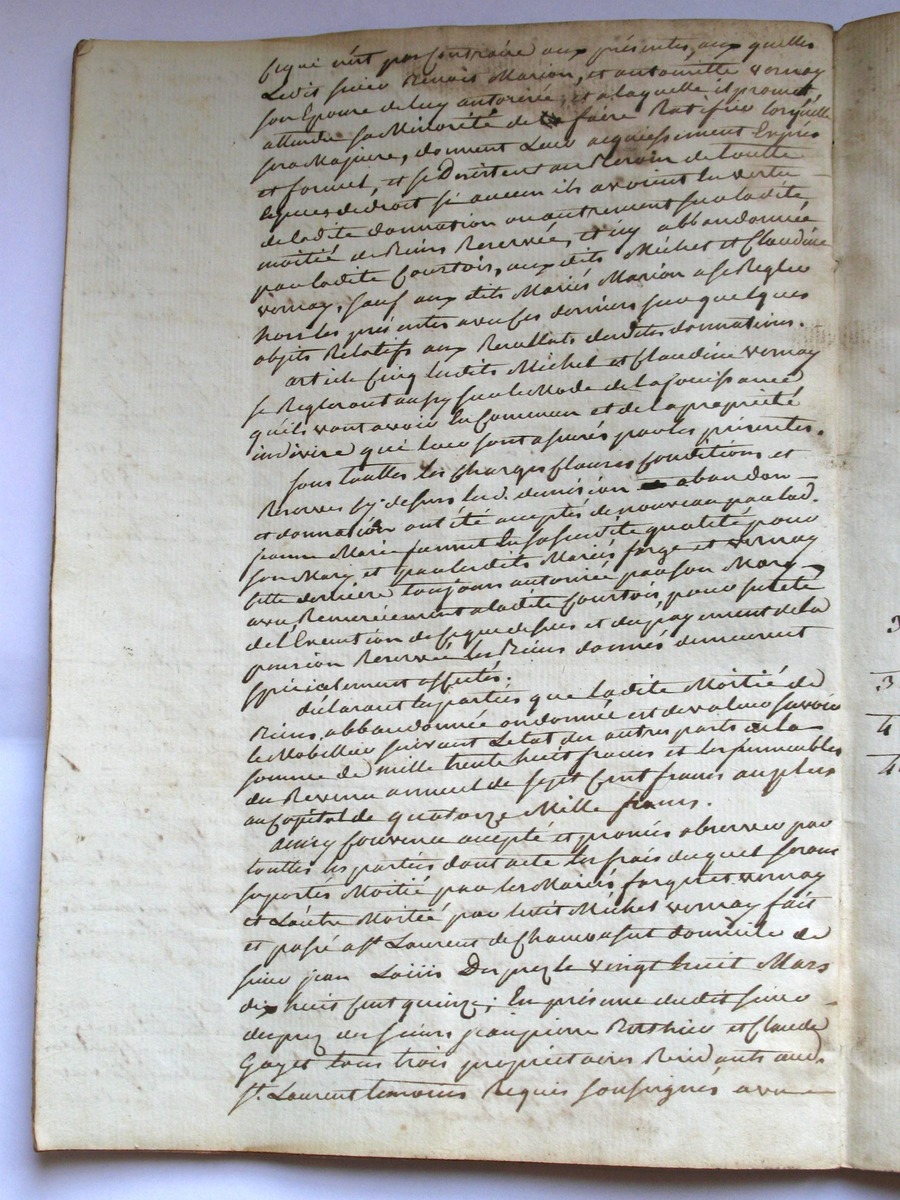 ce qui n'est pas Contraire aux présentes, aux quelles
Ledit sieur Benoit Marion, et antoinette vernay
son Epouse de luy autorisée, et a laquelle il promet,
attendu sa Minorité de la faire Ratifier lorsquelle
sera Majeure, donnent Leur acquiessement Exprès
et formel, et se Desistent au Besoin de toutte
espece de droit si aucun ils avoient En vertu
de la dite donnation ou autrement sur la dite
moitié de Biens Reservée, et icy abbandonnée
par ladite Courtois, aux dits Michel et Claudine
vernay, sauf aux dits Mariés Marion a se Regler
hors les présentes avec ces derniers sur quelques
objets Relatifs aux Resultats desdites donnations.
article Cinq lesdits Michel et Claudine vernay
se Regleront aussy sur le Mode de la Jouissance
qu'ils vont avoir En Commun et de la propriété
indivise qui leur sont assurés par les présentes.
Sous touttes les Charges Clauses Conditions et
Reserves cy dessus lesd. demission abandon
et donnation ont été acceptés de nouveau par lad.
jeanne Marie En sa susdite qualité pour
son Mary et par lesdits Mariés farge et vernay
cette derniere toujours autorisée par son Mary
avec Remerciement a ladite Courtois, pour sureté
de l'Execution de ce que dessus et du payement de la
pension Reservée les Biens donnés demeurent
spécialement affectés.
déclarant les parties que la dite Moitié de
Biens, abbandonnée ou donnée est de valeur savoir
le Mobillier suivant L'etat des autres parts de la
somme de mille trente huit francs et les immeubles
du Revenu annuel de sept Cent francs au plus
au Capital de quatorze Mille francs.
Ainsy Convenu accepté et promis observer par
touttes les parties dont acte les frais duquel seront
suportés Moitié par les Mariés farge et vernay
et L'autre Moitié par ledit Michel vernay fait
et passé a St. Laurent de Chamousset domicile de
sieur jean Louis Duprez le vingt huit Mars
dix huit Cent quinze; En présence dudit sieur
duprez des sieurs jean pierre et Claude
Gayet tous trois propriétaires Residants aud.
St. Laurent temoins Requis soussignés avec
3
3
4
4